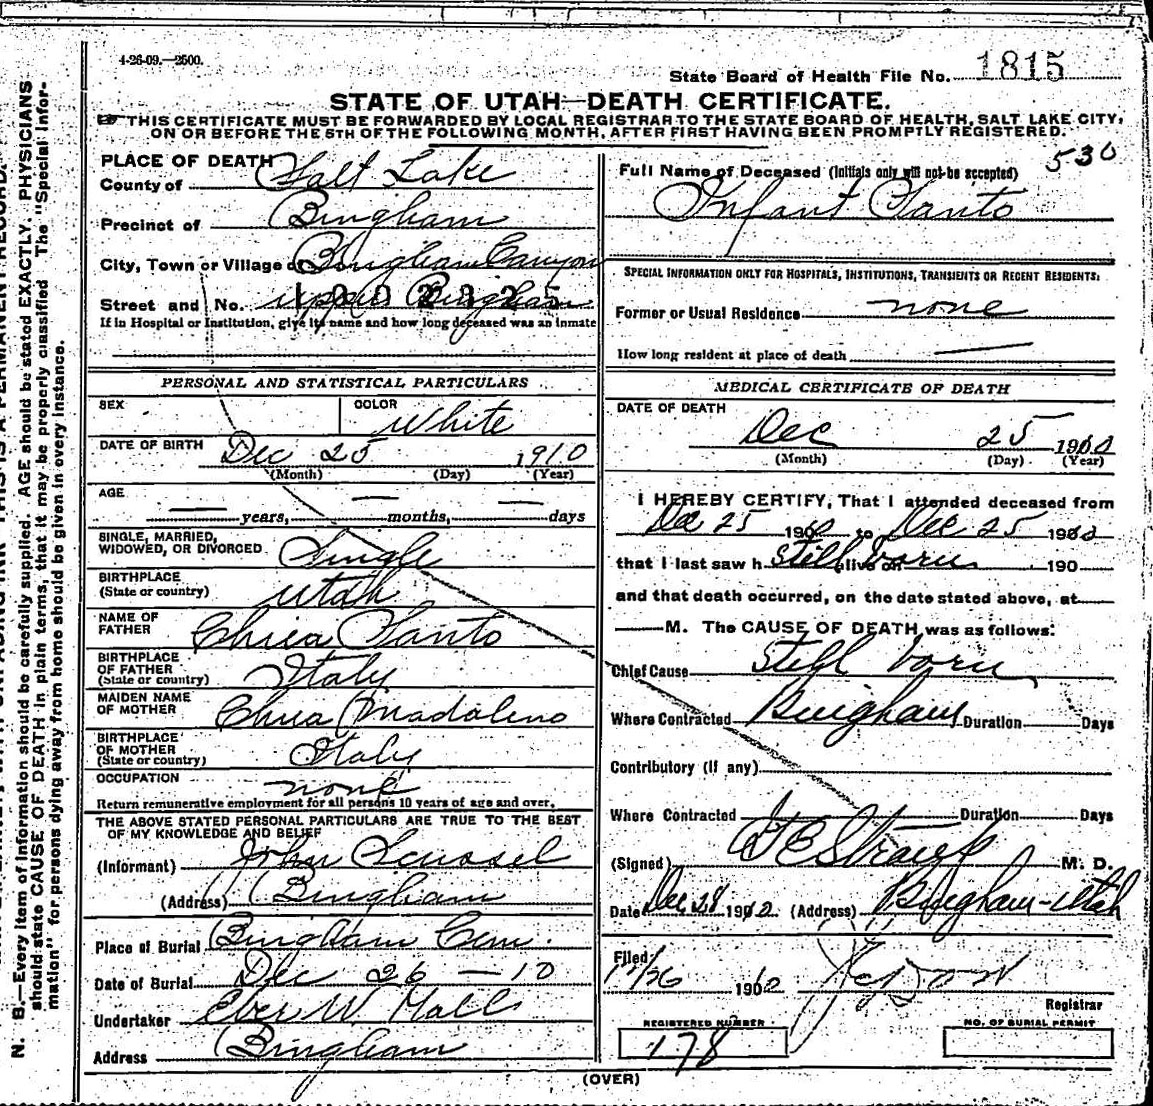 4-26-09.—2500.
State Board of Health File No. 1815
STATE OF UTAH—DEATH CERTIFICATE.
THIS CERTIFICATE MUST BE FORWARDED BY LOCAL REGISTRAR TO THE STATE BOARD OF HEALTH, SALT LAKE CITY,
ON OR BEFORE THE 5TH OF THE FOLLOWING MONTH, AFTER FIRST HAVING BEEN PROMPTLY REGISTERED.
530
PLACE OF DEATH
County of Salt Lake
Precinct of Bingham
City, Town or Village of Bingham Canyon
Street and No. upper Bingham
If in Hospital or Institution, give its name and how long deceased was an inmate
PERSONAL AND STATISTICAL PARTICULARS
SEX
COLOR White
DATE OF BIRTH Dec 25 1910
(Month) (Day) (Year)
AGE
— years, — months, — days
SINGLE, MARRIED,
WIDOWED, OR DIVORCED Single
BIRTHPLACE
(State or country) Utah
NAME OF
FATHER Chica Santo
BIRTHPLACE
OF FATHER
(State or country) Italy
MAIDEN NAME
OF MOTHER Chica Madalino
BIRTHPLACE
OF MOTHER
(State or country) Italy
OCCUPATION none
Return remunerative employment for all persons 10 years of age and over.
THE ABOVE STATED PERSONAL PARTICULARS ARE TRUE TO THE BEST
OF MY KNOWLEDGE AND BELIEF
(Informant) John
(Address) Bingham
Place of Burial Bingham Cem.
Date of Burial Dec 26 — 10
Undertaker Eber W Hall
Address Bingham
Full Name of Deceased (Initials only will not be accepted)
Infant Santo
SPECIAL INFORMATION ONLY FOR HOSPITALS, INSTITUTIONS, TRANSIENTS OR RECENT RESIDENTS:
Former or Usual Residence none
How long resident at place of death —
MEDICAL CERTIFICATE OF DEATH
DATE OF DEATH
Dec 25 1910
(Month) (Day) (Year)
I HEREBY CERTIFY, That I attended deceased from
Dec 25 1910 to Dec 25 1910
that I last saw h still born alive on 190
and that death occurred, on the date stated above, at
M. The CAUSE OF DEATH was as follows:
Chief Cause Still born
Where Contracted Bingham Duration Days
Contributory (if any)
Where Contracted Duration Days
(Signed) F E Straup M. D.
Date Dec 28 1910 (Address) Bingham-Utah
Filed
12/26 1910
Registrar
REGISTERED NUMBER
178
NO. OF BURIAL PERMIT
(OVER)
N. B.—Every item of information should be carefully supplied. AGE should be stated EXACTLY. PHYSICIANS
should state CAUSE OF DEATH in plain terms, that it may be properly classified. The "Special Infor-
mation" for persons dying away from home should be given in every instance.